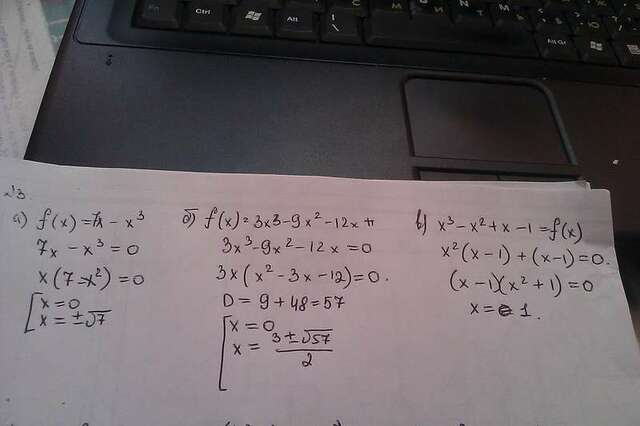 Fn
Ctrl
Alt
Alt Gr
№3.
а) f(x) = 7x - x³
7x - x³ = 0
x(7 - x²) = 0
[ x = 0
x = ±√7
б) f(x) = 3x³ - 9x² - 12x
3x³ - 9x² - 12x = 0
3x(x² - 3x - 12) = 0.
D = 9 + 48 = 57
[ x = 0
x = (3 ± √57)/2
в) x³ - x² + x - 1 = f(x)
x²(x - 1) + (x - 1) = 0.
(x - 1)(x² + 1) = 0
x = 1.